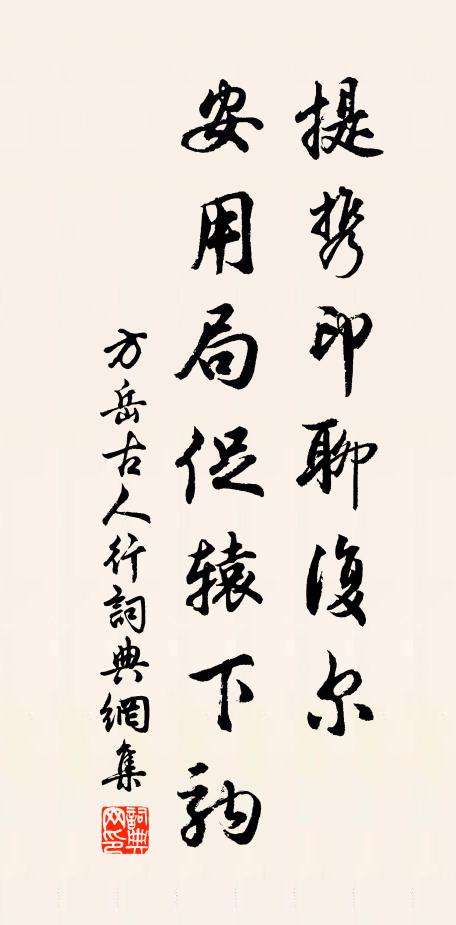 提携印聊復尔
安用局促辕下驹
方岳古人行詞典網集
詞典网印